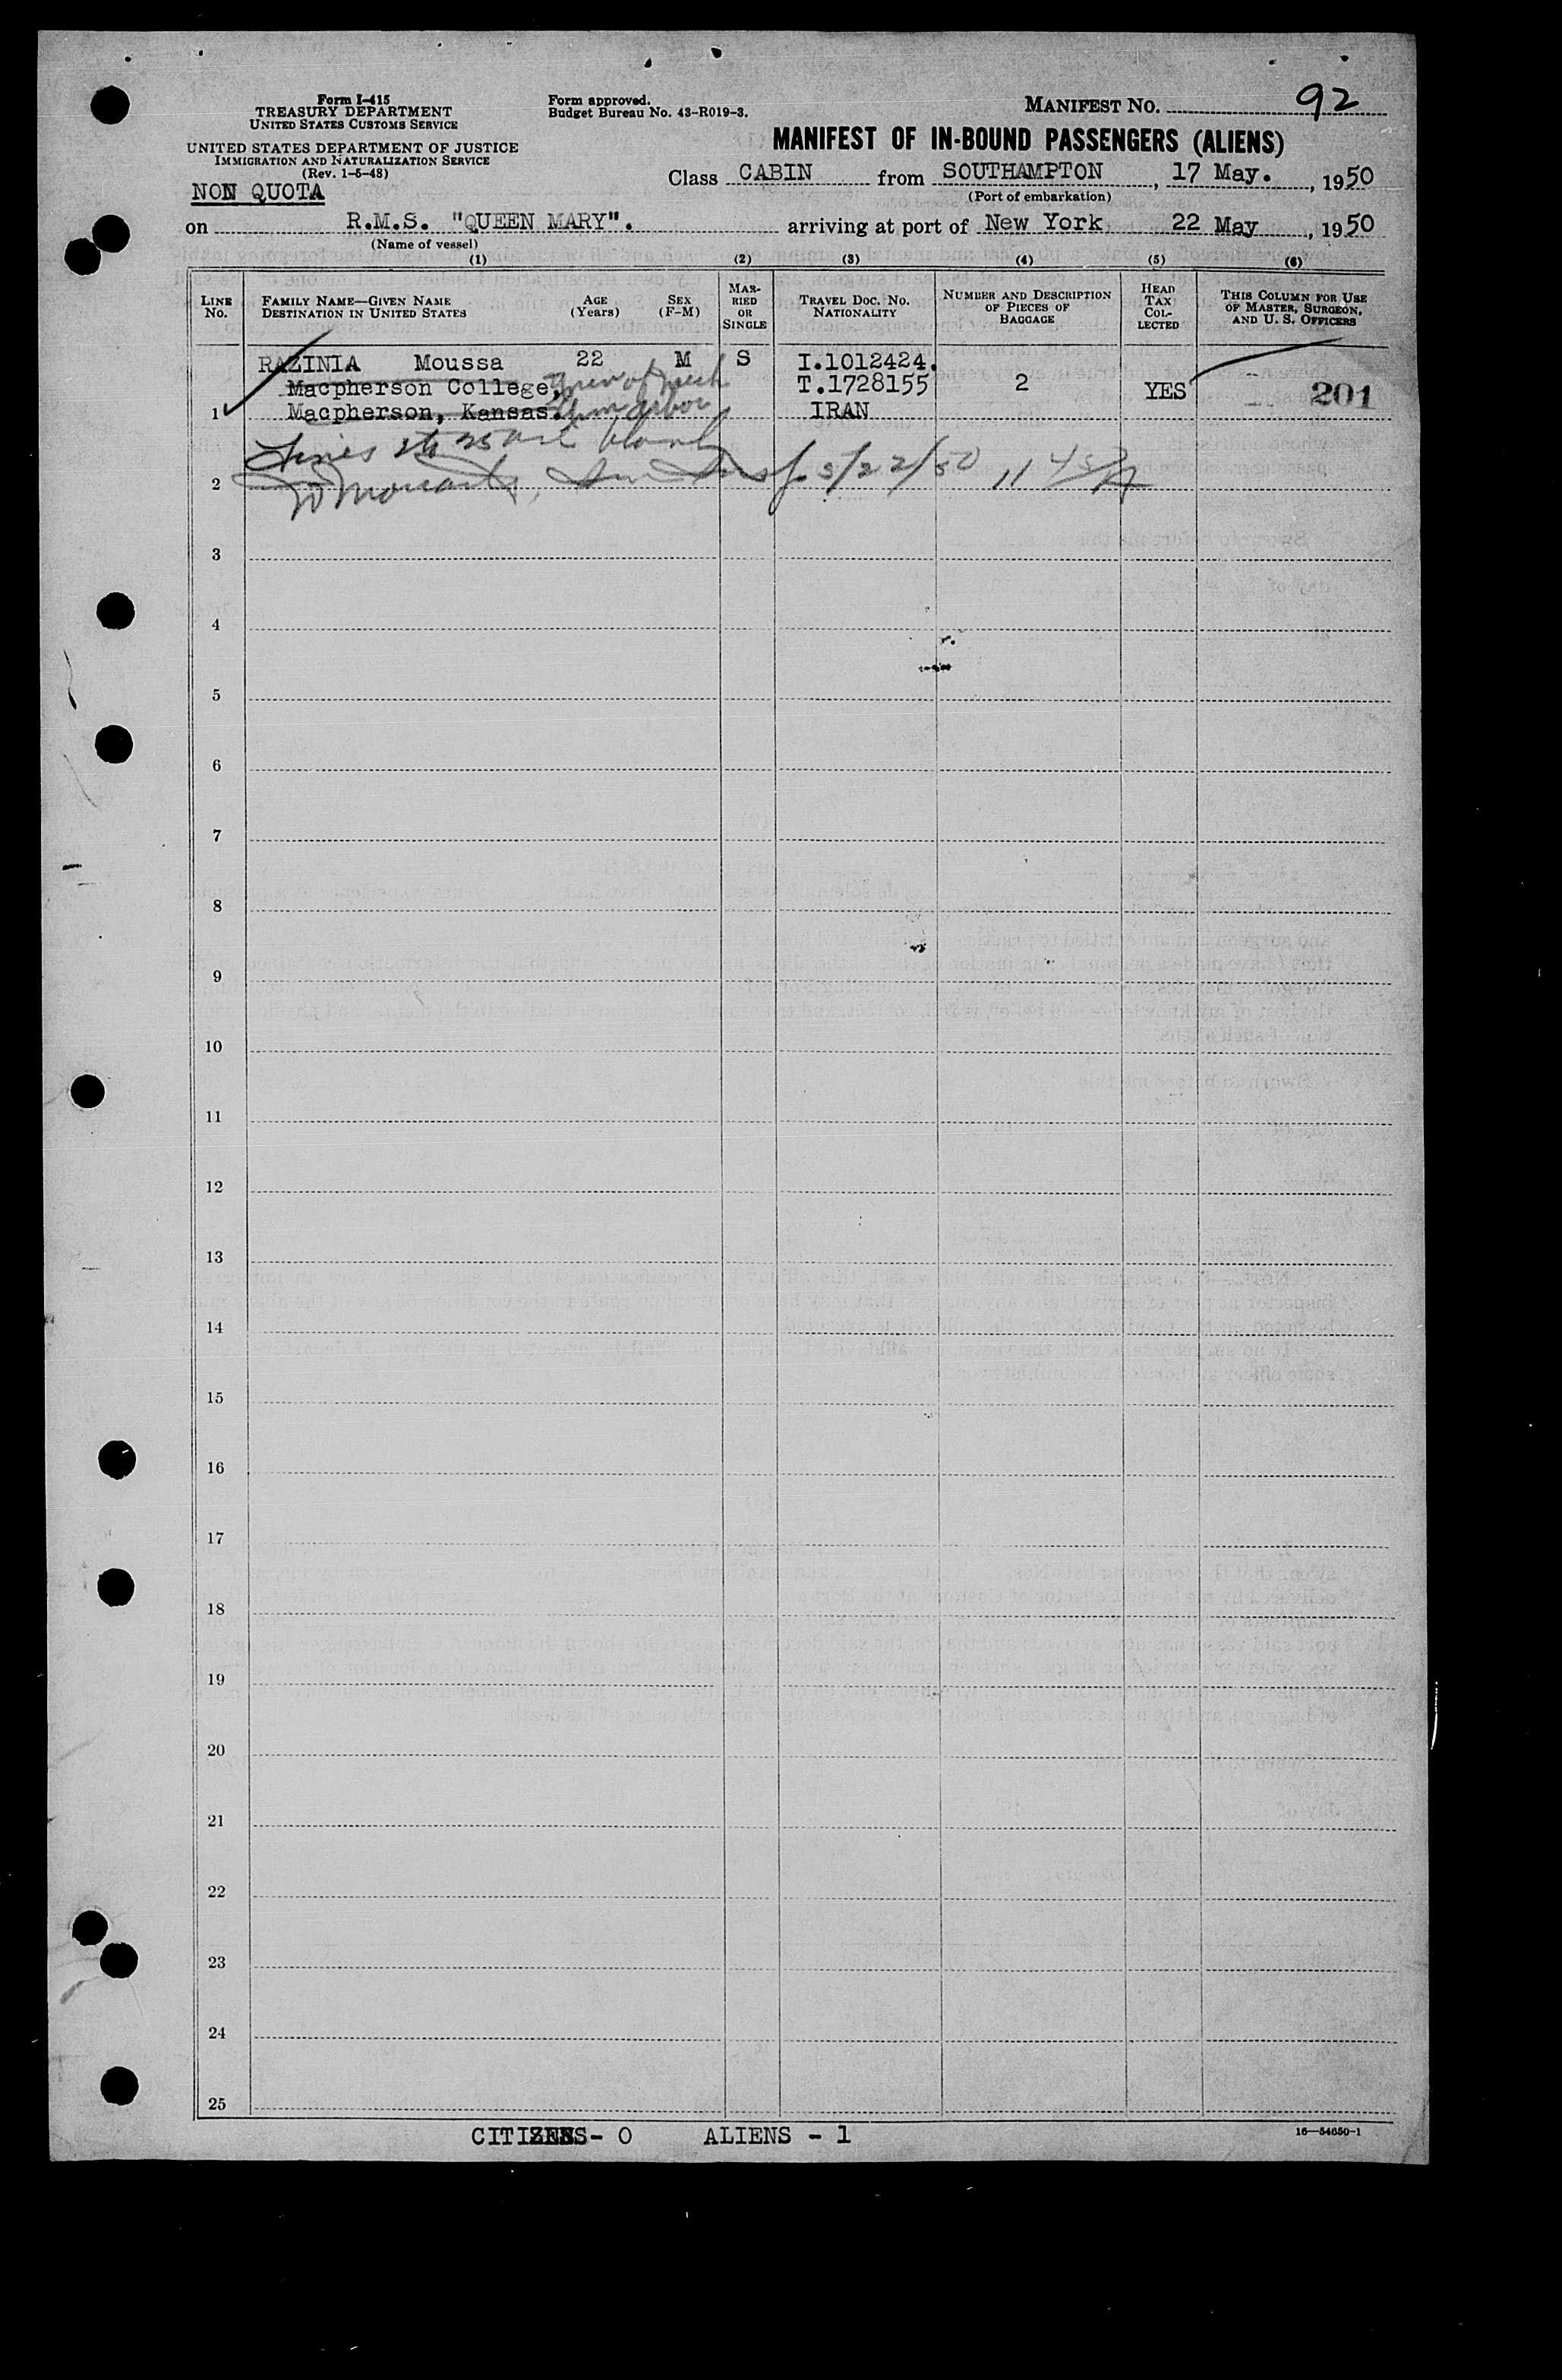 Form I-415
TREASURY DEPARTMENT
UNITED STATES CUSTOMS SERVICE
UNITED STATES DEPARTMENT OF JUSTICE
IMMIGRATION AND NATURALIZATION SERVICE
(Rev. 1-5-48)
NON QUOTA
Form approved.
Budget Bureau No. 43-R019-3.
MANIFEST NO. 92
MANIFEST OF IN-BOUND PASSENGERS (ALIENS)
Class CABIN from SOUTHAMPTON, 17 May., 1950
(Port of embarkation)
on R.M.S. "QUEEN MARY". arriving at port of New York 22 May, 1950
(Name of vessel)
(1) (2) (3) (4) (5) (6)
LINE NO.
FAMILY NAME—GIVEN NAME
DESTINATION IN UNITED STATES
AGE (Years)
SEX (F-M)
MARRIED OR SINGLE
TRAVEL DOC. NO.
NATIONALITY
NUMBER AND DESCRIPTION OF PIECES OF BAGGAGE
HEAD TAX COLLECTED
THIS COLUMN FOR USE OF MASTER, SURGEON, AND U. S. OFFICERS
RAZINIA Moussa 22 M S I.1012424.
Macpherson College, Univ of Mich T.1728155 2 YES 201
1 Macpherson, Kansas. Ann Arbor IRAN
Lines 2 to 25 are blank
2 5/22/50 11 45 A
3
4
5
6
7
8
9
10
11
12
13
14
15
16
17
18
19
20
21
22
23
24
25
CITIZENS- 0 ALIENS - 1
16—54650-1